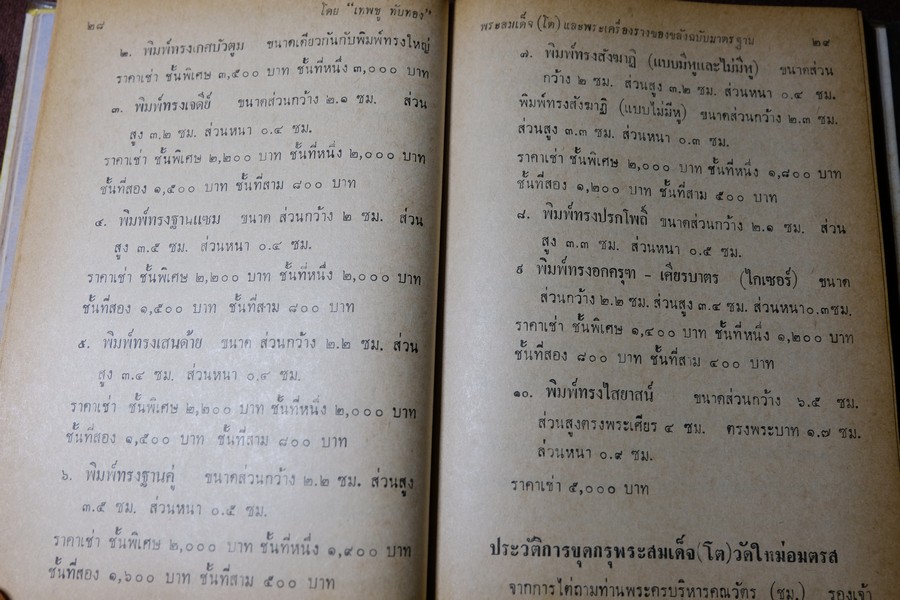 ๒๘
โดย "เทพชู ทับทอง"
๒. พิมพ์ทรงเกศบัวตูม ขนาดเดียวกันกับพิมพ์ทรงใหญ่
ราคาเช่า ชั้นพิเศษ ๓,๕๐๐ บาท ชั้นที่หนึ่ง ๓,๐๐๐ บาท
๓. พิมพ์ทรงเจดีย์ ขนาดส่วนกว้าง ๒.๑ ซม. ส่วน
สูง ๓.๒ ซม. ส่วนหนา ๐.๔ ซม.
ราคาเช่า ชั้นพิเศษ ๒,๒๐๐ บาท ชั้นที่หนึ่ง ๒,๐๐๐ บาท
ชั้นที่สอง ๑,๕๐๐ บาท ชั้นที่สาม ๘๐๐ บาท
๔. พิมพ์ทรงฐานแซม ขนาด ส่วนกว้าง ๒ ซม. ส่วน
สูง ๓.๕ ซม. ส่วนหนา ๐.๔ ซม.
ราคาเช่า ชั้นพิเศษ ๒,๒๐๐ บาท ชั้นที่หนึ่ง ๒,๐๐๐ บาท
ชั้นที่สอง ๑,๕๐๐ บาท ชั้นที่สาม ๘๐๐ บาท
๕. พิมพ์ทรงเส้นด้าย ขนาด ส่วนกว้าง ๒.๒ ซม. ส่วน
สูง ๓.๔ ซม. ส่วนหนา ๐.๔ ซม.
ราคาเช่า ชั้นพิเศษ ๒,๒๐๐ บาท ชั้นที่หนึ่ง ๒,๐๐๐ บาท
ชั้นที่สอง ๑,๕๐๐ บาท ชั้นที่สาม ๘๐๐ บาท
๖. พิมพ์ทรงฐานคู่ ขนาดส่วนกว้าง ๒.๒ ซม. ส่วนสูง
๓.๕ ซม. ส่วนหนา ๐.๕ ซม.
ราคาเช่า ชั้นพิเศษ ๒,๐๐๐ บาท ชั้นที่หนึ่ง ๑,๙๐๐ บาท
ชั้นที่สอง ๑,๖๐๐ บาท ชั้นที่สาม ๕๐๐ บาท
พระสมเด็จ (โต) และพระเครื่องรางของขลังฉบับมาตรฐาน ๒๙
๗. พิมพ์ทรงสังฆาฏิ (แบบมีหูและไม่มีหู) ขนาดส่วน
กว้าง ๒ ซม. ส่วนสูง ๓.๒ ซม. ส่วนหนา ๐.๔ ซม.
พิมพ์ทรงสังฆาฏิ (แบบไม่มีหู) ขนาดส่วนกว้าง ๒.๓ ซม.
ส่วนสูง ๓.๓ ซม. ส่วนหนา ๐.๓ ซม.
ราคาเช่า ชั้นพิเศษ ๒,๐๐๐ บาท ชั้นที่หนึ่ง ๑,๘๐๐ บาท
ชั้นที่สอง ๑,๒๐๐ บาท ชั้นที่สาม ๕๐๐ บาท
๘. พิมพ์ทรงปรกโพธิ์ ขนาดส่วนกว้าง ๒.๑ ซม. ส่วน
สูง ๓.๓ ซม. ส่วนหนา ๐.๕ ซม.
๙ พิมพ์ทรงอกครุฑ - เศียรบาตร (ไกเซอร์) ขนาด
ส่วนกว้าง ๒.๒ ซม. ส่วนสูง ๓.๔ ซม. ส่วนหนา๐.๓ซม.
ราคาเช่า ชั้นพิเศษ ๑,๔๐๐ บาท ชั้นที่หนึ่ง ๑,๒๐๐ บาท
ชั้นที่สอง ๘๐๐ บาท ชั้นที่สาม ๔๐๐ บาท
๑๐. พิมพ์ทรงไสยาสน์ ขนาดส่วนกว้าง ๖.๕ ซม.
ส่วนสูงตรงพระเศียร ๔ ซม. ตรงพระบาท ๑.๗ ซม.
ส่วนหนา ๐.๙ ซม.
ราคาเช่า ๕,๐๐๐ บาท
ประวัติการขุดกรุพระสมเด็จ(โต)วัดใหม่อมตรส
จากการไต่ถามท่านพระครูบริหารคุณวัตร (ชม.) รองเจ้า